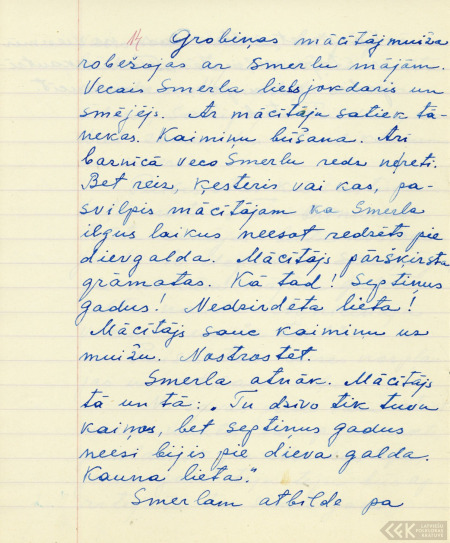 14.
Grobiņas mācītājmuiža
robežojas ar Smerlu mājām.
Vecais Smerla liels jokdaris un
smējējs. Ar mācītāju satiek tā-
nekas. Kaimiņu būšana. Arī
baznīcā veco Smerlu redz nereti.
Bet reiz, ķesteris vai kas, pa-
svilpis mācītājam ka Smerla
ilgus laikus neesot redzēts pie
dievgalda. Mācītājs pāršķirsta
grāmatas. Kā tad! Septiņus
gadus! Nedzirdēta lieta!
Mācītājs sauc kaimiņu uz
muižu. Nostrostēt.
Smerla atnāk. Mācītājs
tā un tā: „Tu dzīvo tik tuvu
kaiņos, bet septiņus gadus
neesi bijis pie dieva galda.
Kauna lieta."
Smerlam atbilde pa
LATVIEŠU
FOLKLORAS
KRĀTUVE